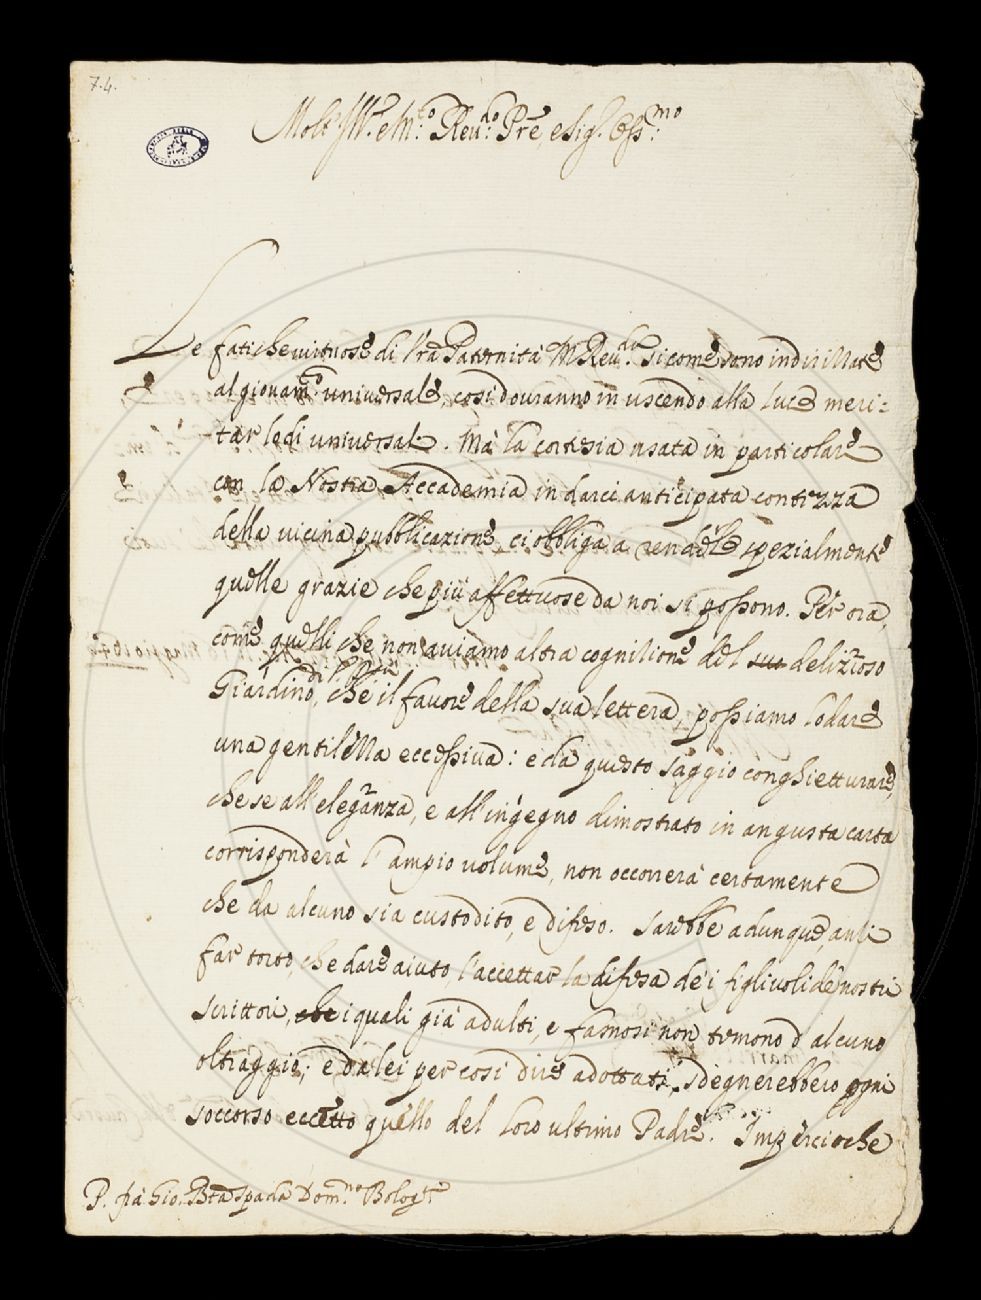 7.4.
Molt' Ill.e e M.to Reu.do P̃re, e Sig.r Oss.mo
Le fatiche uirtuose di V̄ra Paternità M Reu.da sicome sono indirizzate
al giouam.to uniuersale, così douranno in uscendo alla luce meri=
tar lodi uniuersali. Mà la cortesia usata in particolare
con la Nostra Accademia in darci anticipata contezza
della uicina pubblicazione, ci obbliga a renderle spezialmente
quelle grazie che più affettuose da noi si possono. Per ora,
come quelli che non auiamo altra cognitione del suo delizioso
Giardino, che il fauore della sua lettera, possiamo lodare
una gentilezza eccessiua: e da questo saggio conghietturare,
che se all'eleganza, e all'ingegno dimostrato in angusta carta
corrisponderà l'ampio uolume, non occorrerà certamente
che da alcuno sia custodito, e difeso. Sarebbe adunque anzi
far torto, che dare aiuto, l'accettar la difesa de i figliuoli de nostri
scrittori, che i quali già adulti, e famosi non temono d'alcuno
oltraggio; e da lei per così dire adottati, sdegnerebbero ogni
soccorso eccetto quello del loro ultimo Padre. Imperciocche
P. frà Gio. Bta Spada Dom.no Bolog.a